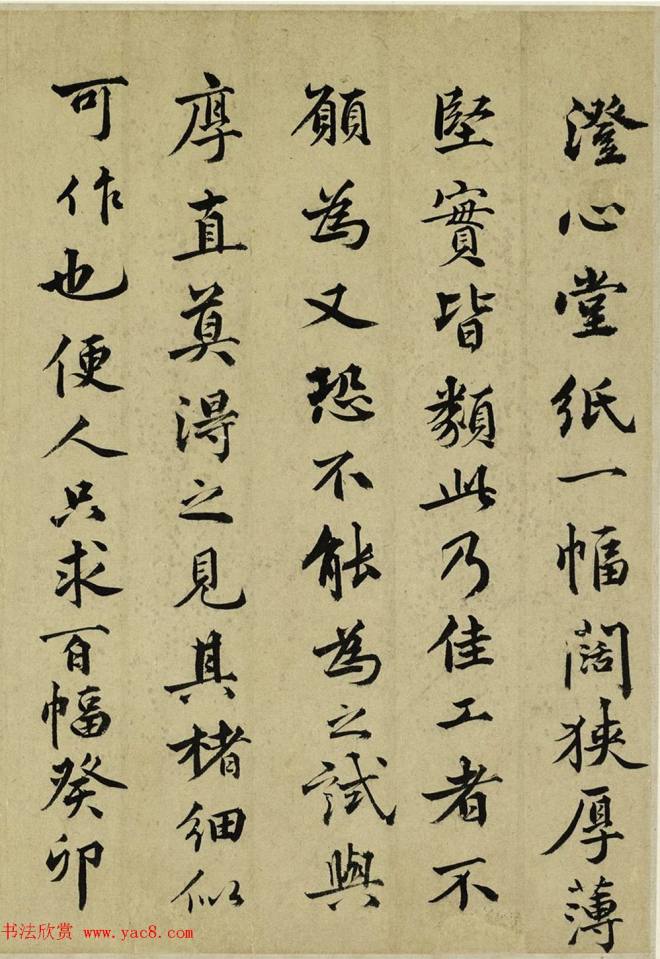 澄心堂紙一幅闊狹厚薄
堅實皆類此乃佳工者不
願為又恐不能為之試與
厚直莫得之見其楮細似
可作也便人只求百幅癸卯
书法欣赏 www.yac8.com